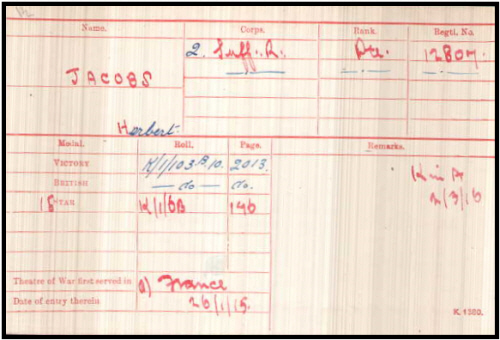 Name. Corps. Rank. Regtl. No.
JACOBS 2. Suff. R. Pte. 12807.
Herbert.
Medal. Roll. Page. Remarks.
VICTORY K/1/103 B.10. 2013.
BRITISH — do — do.
15 STAR K/1/6B 196
K in A
2/3/16
Theatre of War first served in (1) France
Date of entry therein 26/1/15.
K 1380.